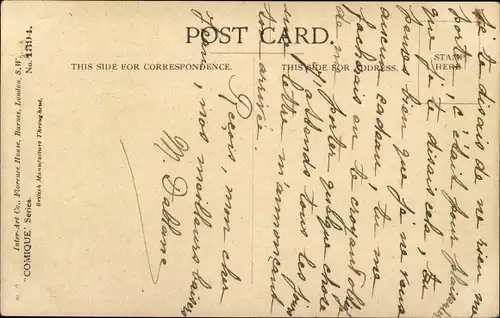 POST CARD.
THIS SIDE FOR CORRESPONDENCE.
THIS SIDE FOR ADDRESS.
STAMP
HERE
Inter-Art Co., Florence House, Barnes, London, S.W.
"COMIQUE" Series.
No. 1391.
British Manufacture Throughout.
je te disais de ne rien me
porter, c'était pour plaisanter
que je te disais cela, tu
penses bien que je ne veux
aucun cadeau, tu me
fâcherais en te croyant
de m'apporter quelque chose
J'attends tous les jours
une lettre m'annonçant
ton arrivée.
Reçois, mon cher
Jean, nos meilleurs baisers
M.